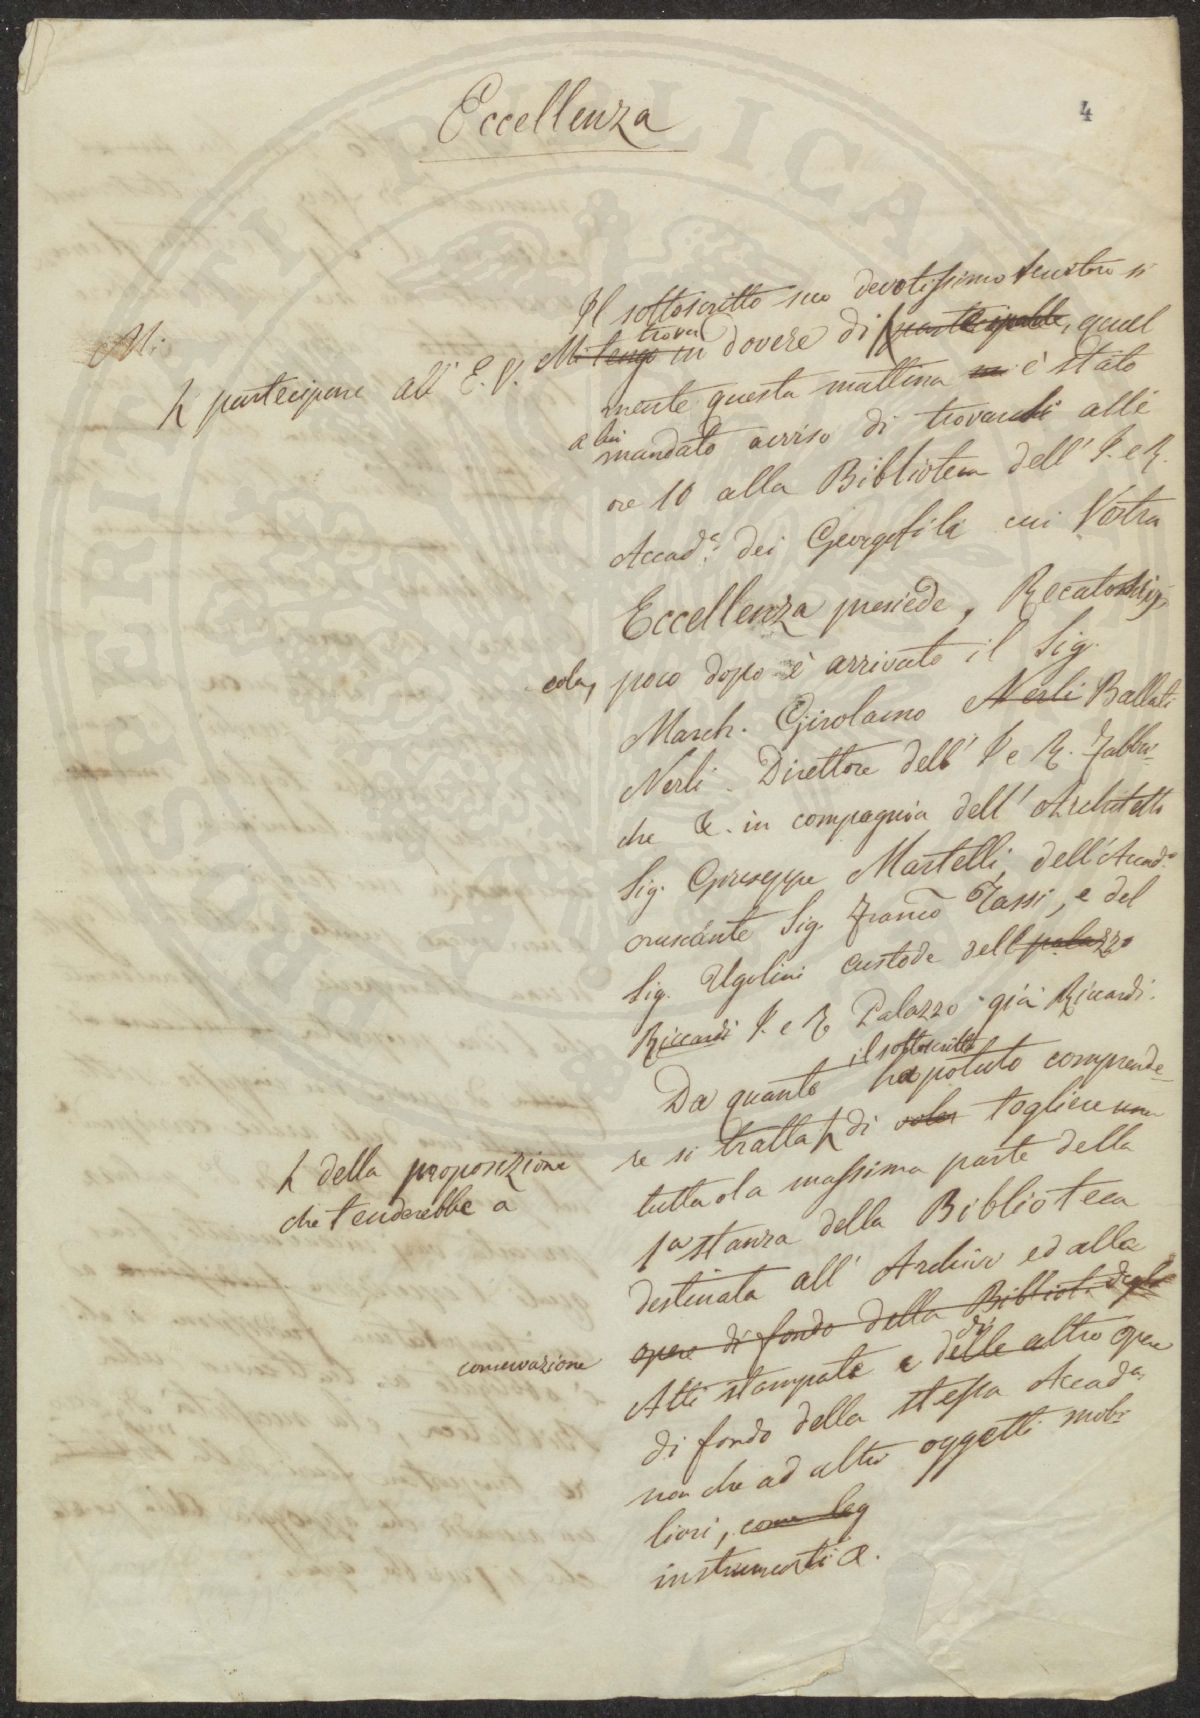 4
Eccellenza
Il sottoscritto suo devotissimo servitore si
Mi:
trova
Mi tengo in dovere di partecipable, qual
partecipare all' E. V.
mente questa mattina mi è stato
a lui
mandato avviso di trovarsi alle
ore 10 alla Biblioteca dell' I. e R.
Accad.a dei Georgofili cui Vostra
Eccellenza presiede, Recatosi
cola, poco dopo è arrivato il Sig.
March. Girolamo Nerli Ballati
Nerli Direttore dell' I e R. Fabbri-
che &. in compagnia dell' Architetto
Sig. Giuseppe Martelli, dell' Accad.o
cruscante Sig. Franco Tassi, e del
Sig. Ugolini custode dell palazzo
Riccardi I. e R Palazzo già Riccardi.
il sottoscritto
Da quanto ha potuto comprende-
re si tratta di voler togliere una
della proposizione
che tenderebbe a
tutta o la massima parte della
1a stanza della Biblioteca
destinata all' Archivio ed alla
opere di fondo della Bibliot. degli
conservazione
di
Atti stampati e delle altre opere
di fondo della stessa Accad.a,
non che ad altri oggetti mobi-
liari, come leg
instrumenti &.